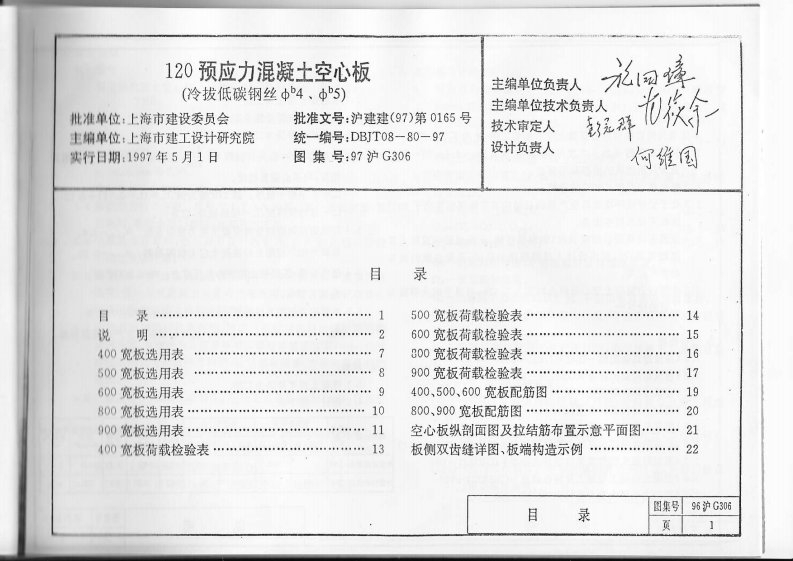 120预应力混凝土空心板
(冷拔低碳钢丝 ϕb4、ϕb5)
批准单位:上海市建设委员会 批准文号:沪建建(97)第0165号
主编单位:上海市建工设计研究院 统一编号:DBJT08-80-97
实行日期:1997年5月1日 图集号:97沪G306
主编单位负责人
主编单位技术负责人
技术审定人
设计负责人 何维国
目 录
目 录 1
说 明 2
400宽板选用表 7
500宽板选用表 8
600宽板选用表 9
800宽板选用表 10
900宽板选用表 11
400宽板荷载检验表 13
500宽板荷载检验表 14
600宽板荷载检验表 15
800宽板荷载检验表 16
900宽板荷载检验表 17
400、500、600宽板配筋图 19
800、900宽板配筋图 20
空心板纵剖面图及拉结筋布置示意平面图 21
板侧双齿缝详图、板端构造示例 22
目 录
图集号 96沪G306
页 1